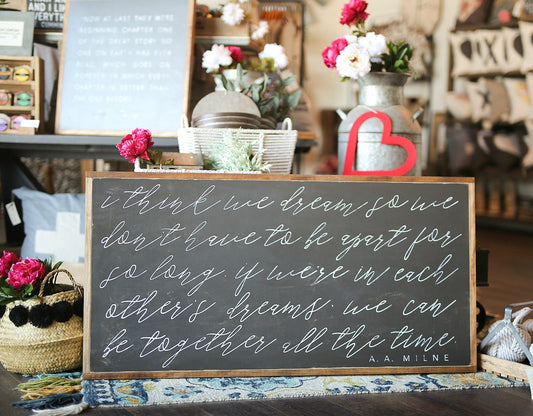 AND I
LIKE
EVERYTHING
NOW AT LAST THEY WERE
BEGINNING CHAPTER ONE
OF THE GREAT STORY NO
ONE ON EARTH HAS EVER
READ, WHICH GOES ON
FOREVER IN WHICH EVERY
CHAPTER IS BETTER THAN
THE ONE BEFORE
i think we dream so we
don't have to be apart for
so long. if we're in each
other's dreams, we can
be together all the time.
A.A. MILNE